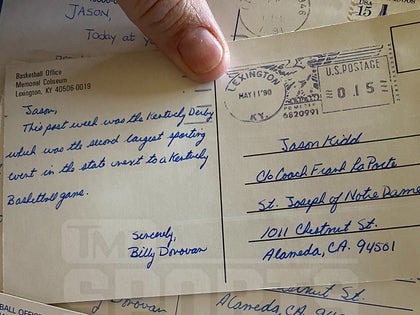 JASON,
Today at y
USA
15
Basketball Office
Memorial Coliseum
Lexington, KY 40506-0019
Jason,
This past week was the Kentucky Derby
which was the second largest sporting
event in the state next to a Kentucky
Basketball game.
Sincerely,
Billy Donovan
LEXINGTON
MAY 11'90
KY.
U.S. POSTAGE
0.15
PB METER
6820991
Jason Kidd
C/o Coach Frank LaPorte
St. Joseph of Notre Dame
1011 Chestnut St.
Alameda, CA. 94501
TMZ
SPORTS
BALL OFFICE
Donovan
nut St.
Alameda, CA. 94501